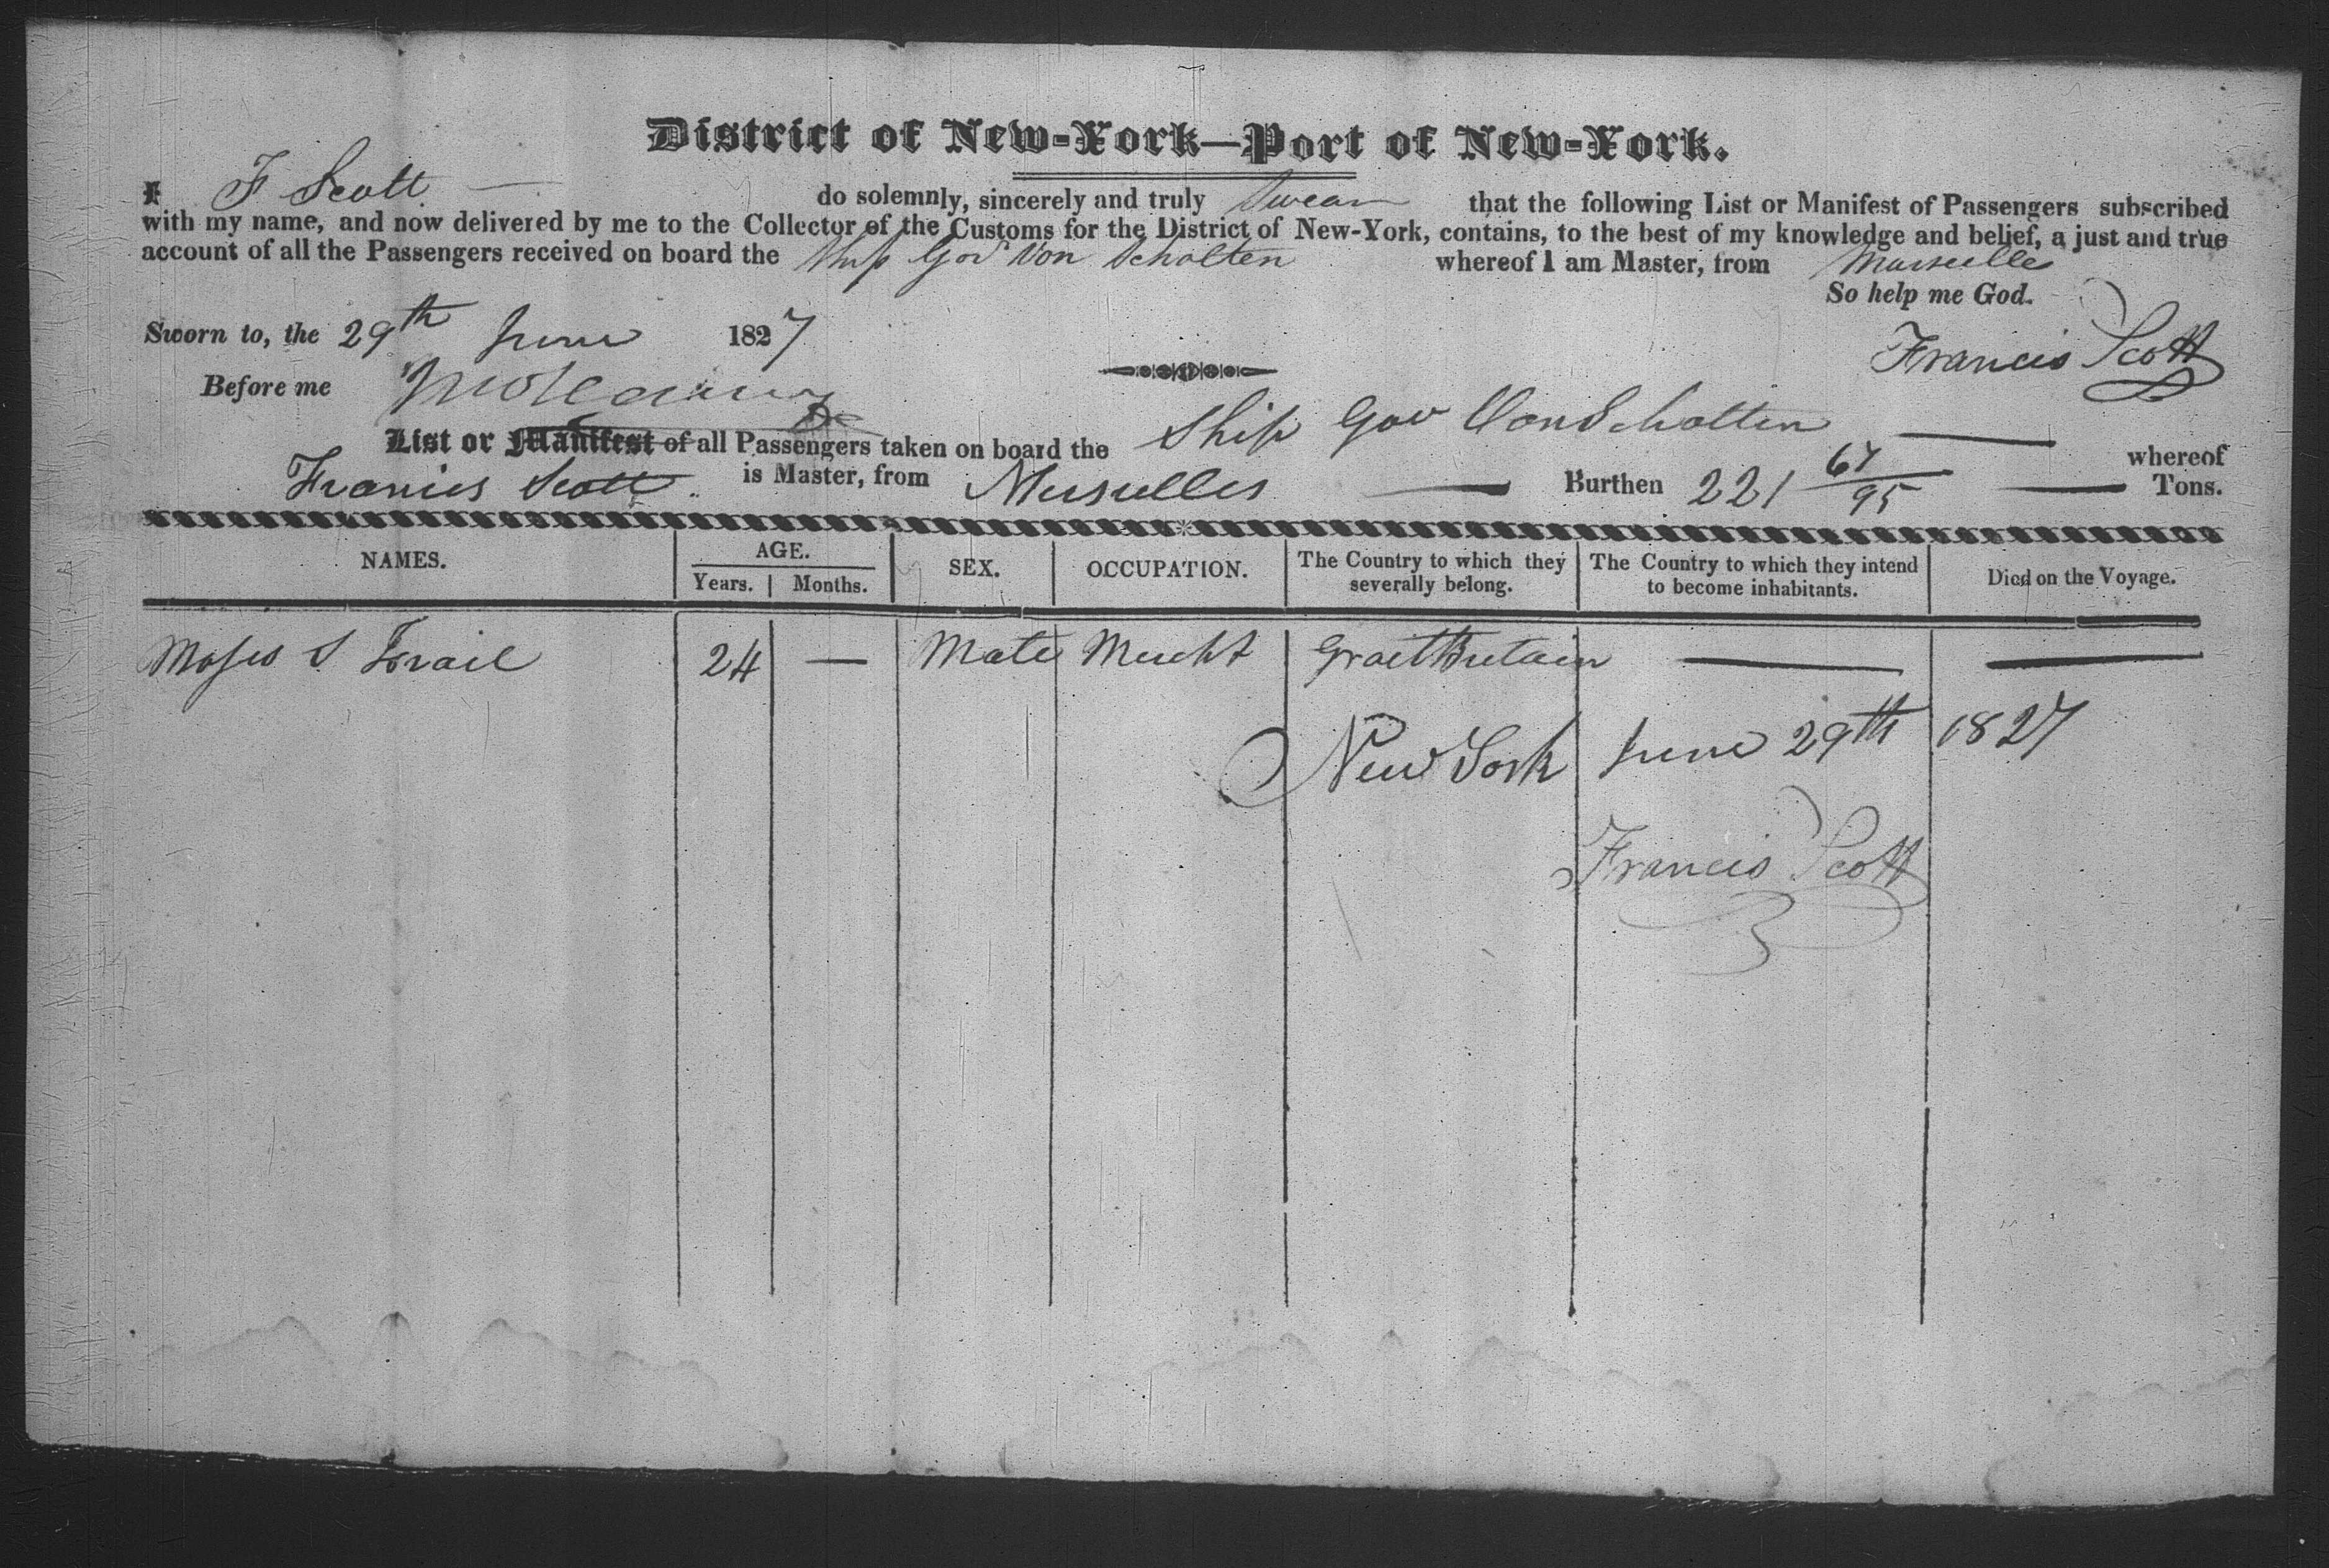 District of New-York—Port of New-York.
I F Scott — do solemnly, sincerely and truly Swear that the following List or Manifest of Passengers subscribed
with my name, and now delivered by me to the Collector of the Customs for the District of New-York, contains, to the best of my knowledge and belief, a just and true
account of all the Passengers received on board the Ship Gov Von Scholten whereof I am Master, from Marseille
So help me God.
Sworn to, the 29th June 1827
Francis Scott
Before me
List or Manifest of all Passengers taken on board the Ship Gov Von Scholten — whereof
Francis Scott is Master, from Marseilles — Burthen 221 67/95 — Tons.
NAMES. AGE. SEX. OCCUPATION. The Country to which they severally belong. The Country to which they intend to become inhabitants. Died on the Voyage.
Years. Months.
Moses S 24 — Male Mercht Graet Britain — —
New York June 29th 1827
Francis Scott